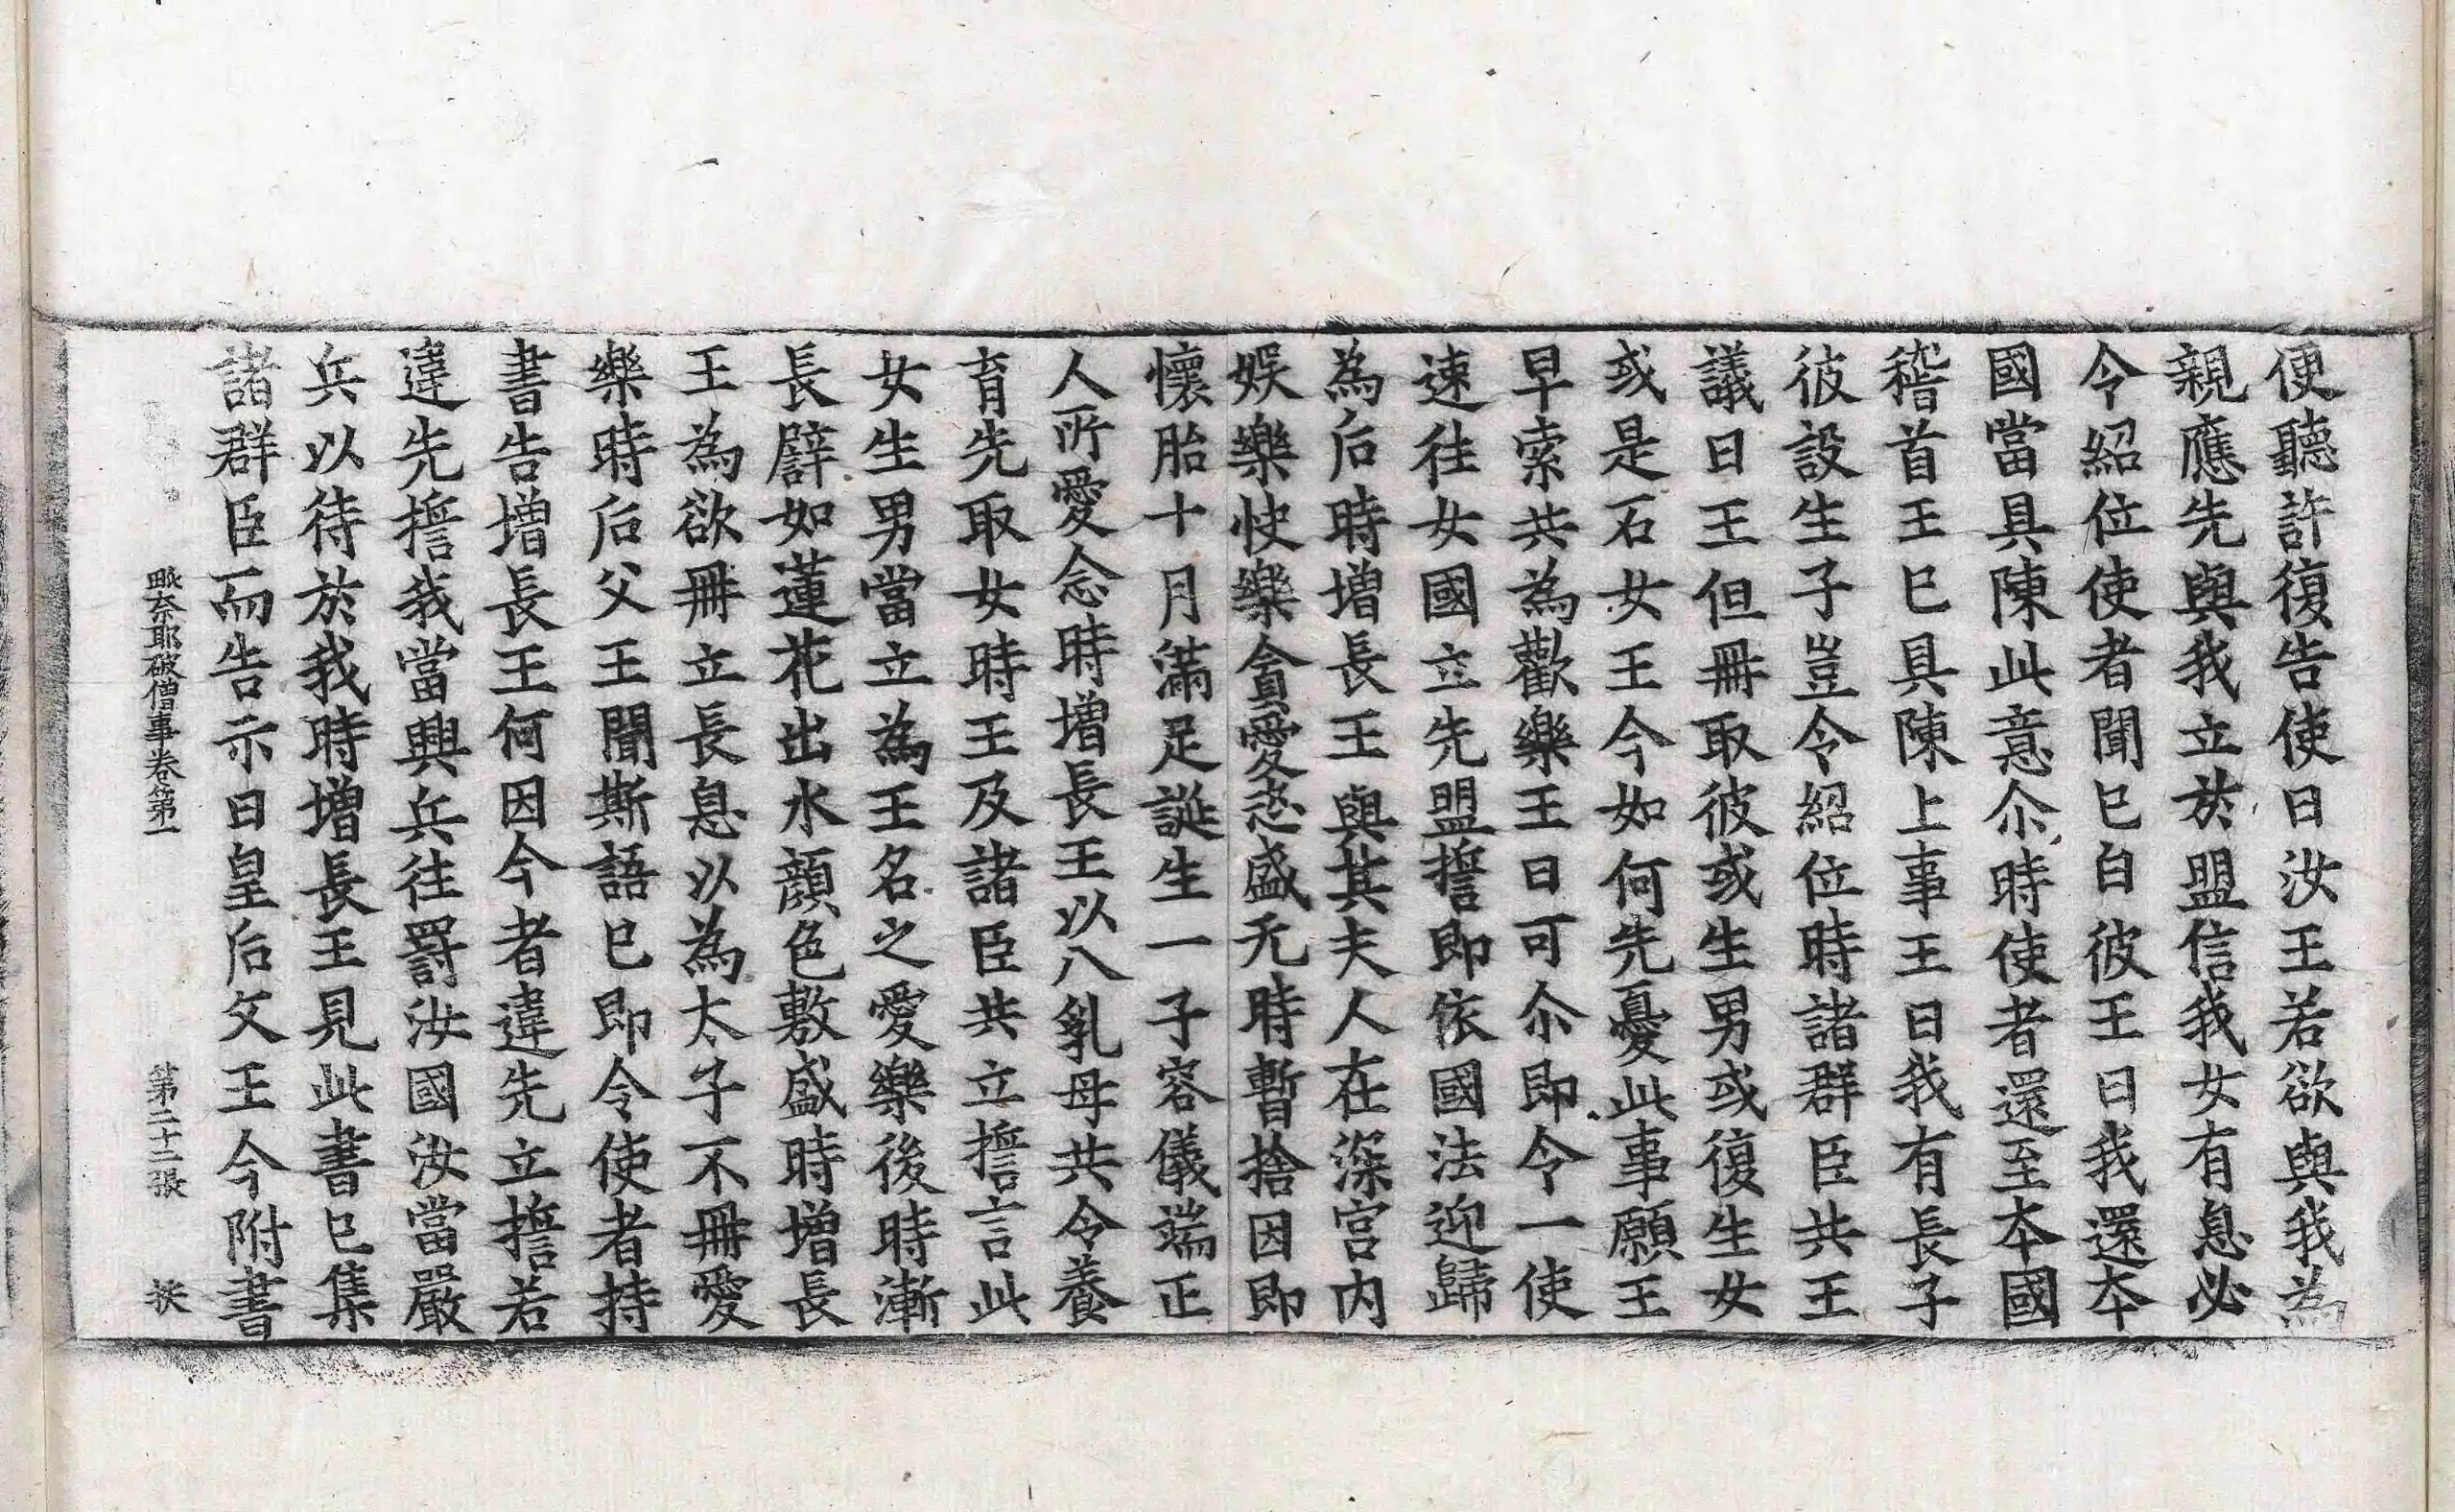 便聽許復告使曰汝王若欲與我為
親應先與我立於盟信我女有息必
令紹位使者聞已白彼王曰我還本
國當具陳此意尒時使者還至本國
稽首王已具陳上事王曰我有長子
彼設生子豈令紹位時諸群臣共王
議曰王但冊取彼或生男或復生女
或是石女王今如何先憂此事願王
早索共為歡樂王曰可尒即令一使
速往女國立先盟誓即依國法迎歸
為后時增長王與其夫人在深宮內
娛樂快樂貪愛恣盛无時暫捨因即
懷胎十月滿足誕生一子容儀端正
人所愛念時增長王以八乳母共令養
育先取女時王及諸臣共立誓言此
女生男當立為王名之愛樂後時漸
長譬如蓮花出水顏色敷盛時增長
王為欲冊立長息以為太子不冊愛
樂時后父王聞斯語已即令使者持
書告增長王何因今者違先立誓若
違先誓我當興兵往罸汝國汝當嚴
兵以待於我時增長王見此書已集
諸群臣而告示曰皇后父王今附書
毗奈耶破僧事卷第一 第二十二張